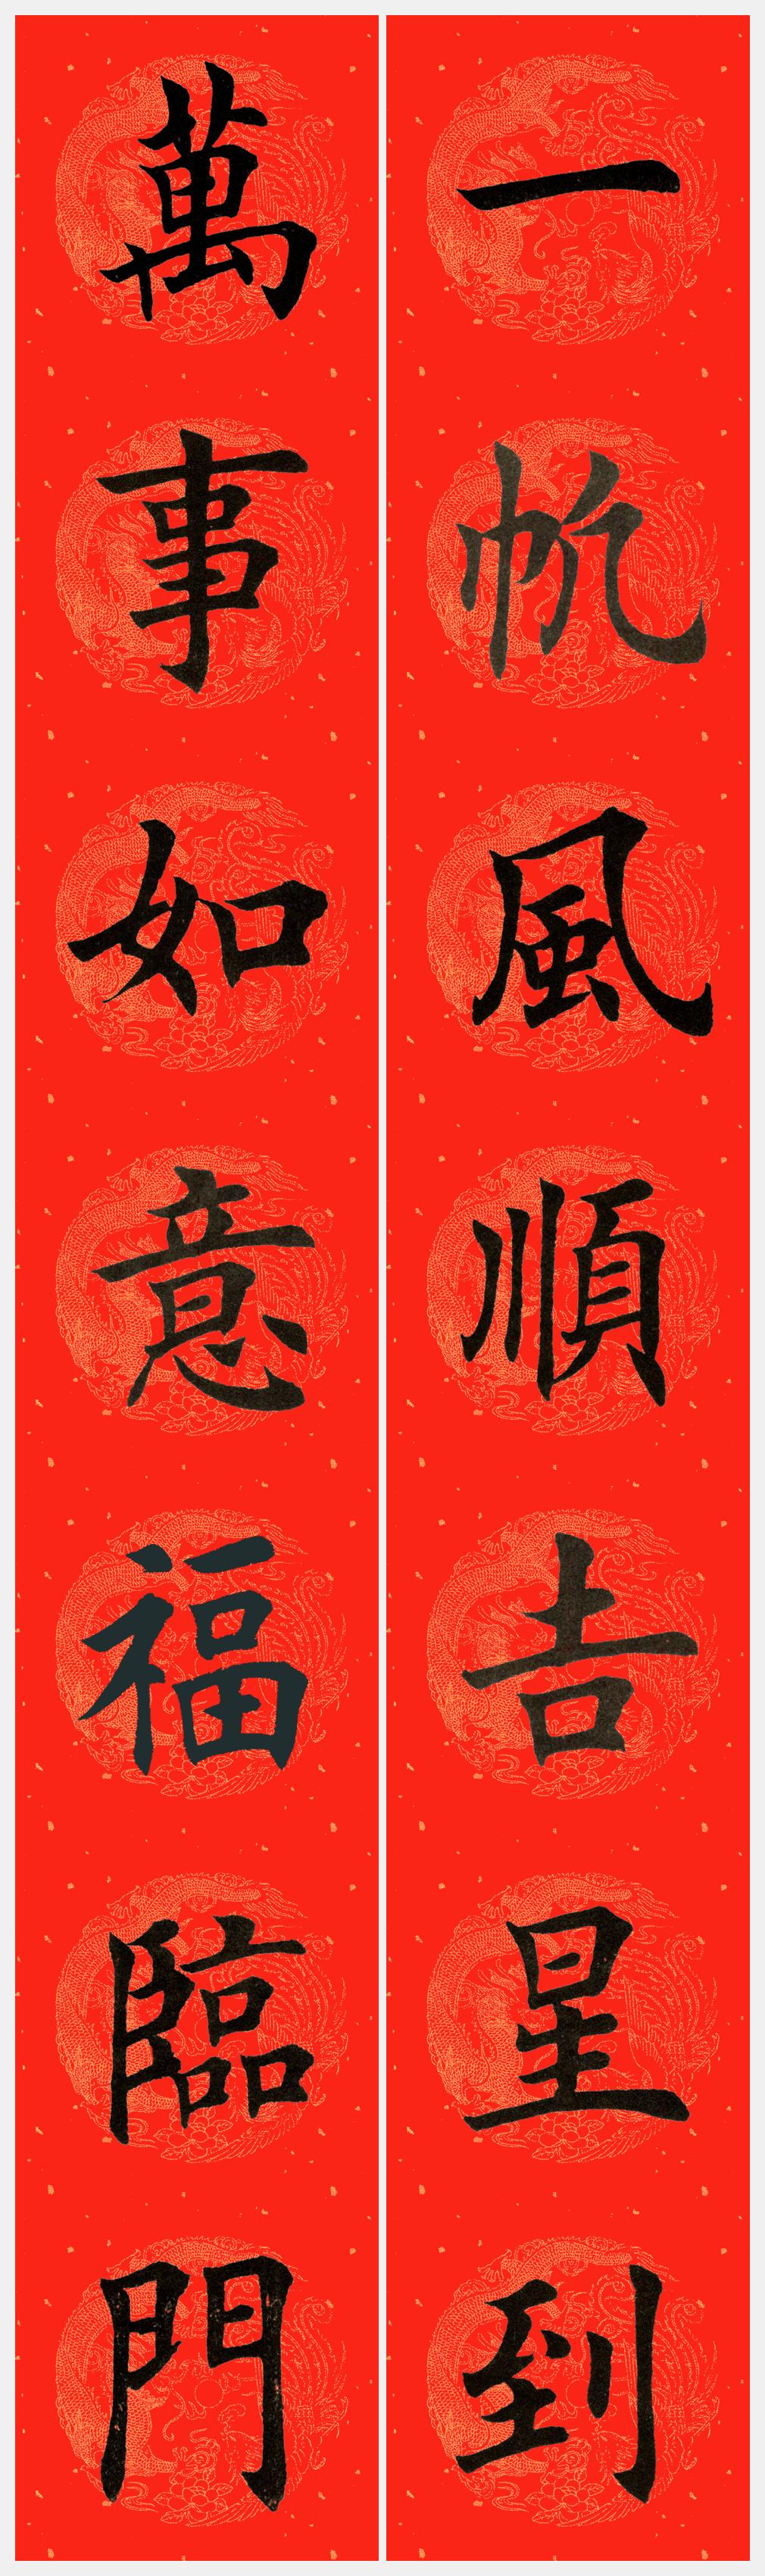 一帆風順吉星到
萬事如意福臨門